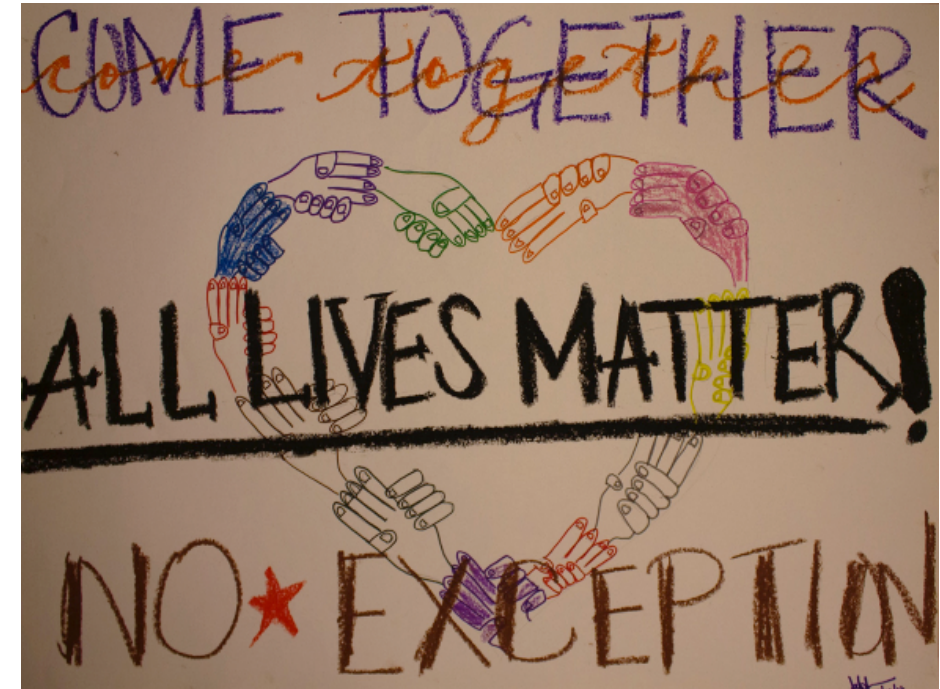 COME TOGETHER
come together
ALL LIVES MATTER!
NO★EXCEPTION